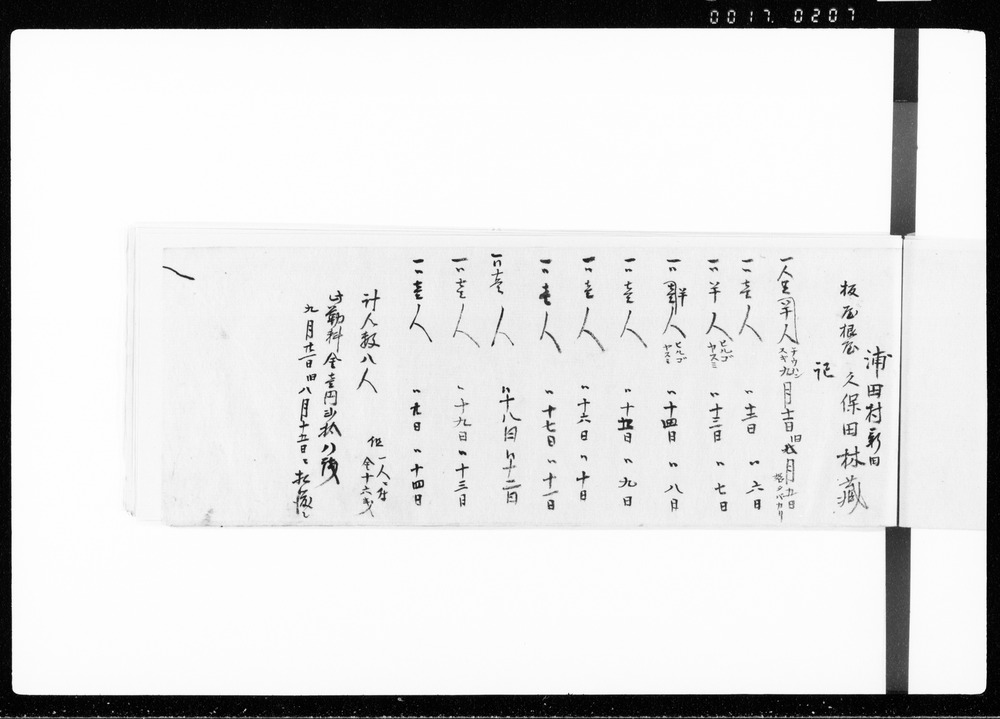 0017. 0207
浦田村新田
板屋根屋 久保田林藏
記
一人半人 テウハンスギ 九月十一日 旧八月五日
一〃壱人 〃十二日 〃六日
一〃半人 ヒルゴヤスミ 〃十三日 〃七日
一〃半人 ヒルゴヤスミ 〃十四日 〃八日
一〃壱人 〃十五日 〃九日
一〃壱人 〃十六日 〃十日
一〃壱人 〃十七日 〃十一日
一〃壱人 〃十八日 〃十二日
一〃壱人 〃十九日 〃十三日
一〃壱人 〃廿日 〃十四日
計人数八人 但一人ニ付金十六戋
此勤料金壱円弐拾八戋
九月廿一日旧八月十五日ニ払済ミ